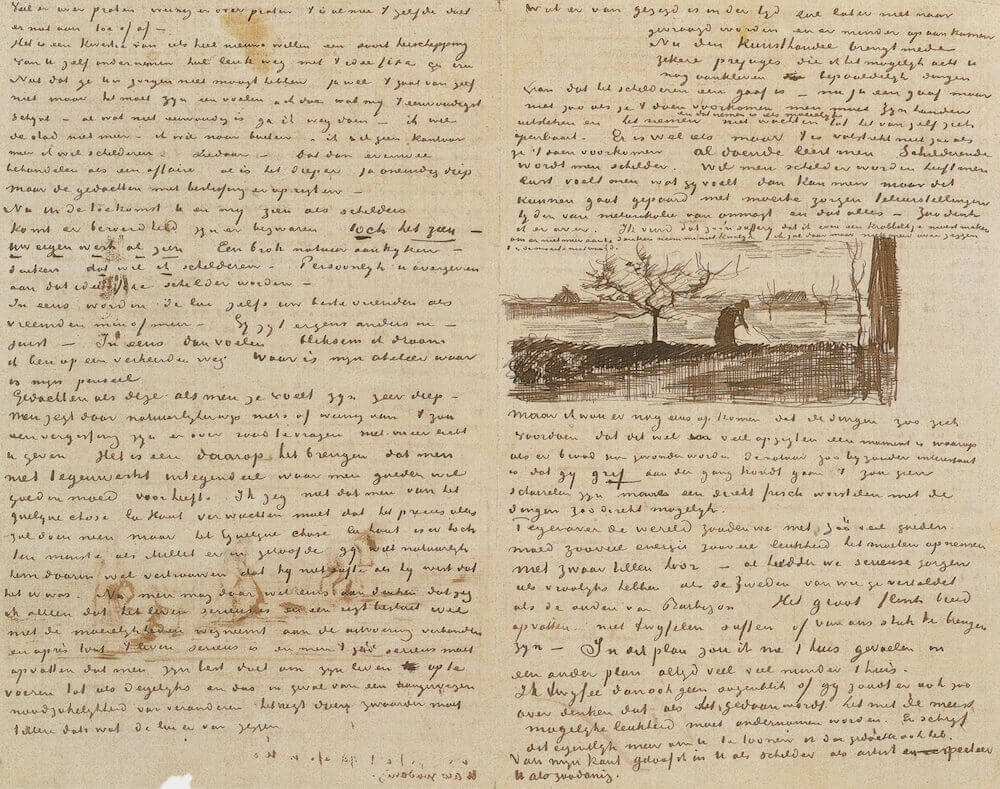 Veel er over praten weinig er over praten 't is al mee 't zelfde doet
er niet aan toe of af —
Het is een kwestie van iets heel nieuws willen een soort herschepping
van U zelf ondernemen heel leuk weg met 't idée fixe ça ira
Niet dat ge Uw zorgen niet moogt hebben jawel 't gaat van zelf
niet maar het moet zijn een voelen ik doe wat mij 't eenvoudigst
schijnt — al wat niet eenvoudig is ga ik weg doen — ik wil
de stad niet meer — ik wil naar buiten — ik wil geen kantoor
meer ik wil schilderen. Ziedaar — Dat dan er mee
behandelen als een affaire al is het dieper ja oneindig diep
maar de gedachten met beslistheid er op rigten —
Nu in de toekomst U en mij zien als schilders
komt er benaauwdheid zijn er bezwaren toch het zien —
Uw eigen werk al zien Een brok natuur aankijken —
denken dat wil ik schilderen — Persoonlijk U overgeven
aan dat idée fixe schilder worden —
In eens worden de lui zelfs uw beste vrienden als
vreemden min of meer — Gij zijt ergens anders in —
juist — In eens dan voelen bliksem ik droom
ik ben op een verkeerden weg waar is mijn atelier waar
is mijn penseel
Gedachten als deze als men je voelt zijn zeer diep —
men zegt daar natuurlijkerwijs niets of weinig van 't zou
een vergissing zijn er over raad te vragen niet meer licht
U geven Het is een daarop het brengen dat men
niet tegenwerkt integendeel waar men goeden wil
goeden moed voor heeft. Ik zeg niet dat men van het
quelque chose là Haut verwachten moet dat het precies alles
zal doen neen maar het quelque chose là haut is er toch
ten minste als Millet er in geloofde gij wilt natuurlijk
hem daarin wel vertrouwen dat hij niet sufte als hij wist dat
het er was. Nu men mag daar wel eens aan denken dat zeg
ik alleen dat het leven serieus is en een regt besluit veel
met de moeielijkheden wegneemt aan de uitvoering verbonden
en après tout 't leven serieus is en men 't zóó serieus moet
opvatten dat men zijn best doet om zijn leven op te
voeren tot iets degelijks en dus in geval van een aangewezen
noodzakelijkheid van veranderen het regt doen zwaarder moet
tellen dan wat de lui er van zeggen
Wat er van gezegd is in der tijd zal later niet naar
gevraagd worden en er minder op aan komen
Nu den Kunsthandel brengt mede
zekere préjugés die ik het mogelijk acht U
nog aankleven bepaaldelijk dingen
van dat het schilderen een gaaf is — nu ja een gaaf maar
niet zoo als ze 't doen voorkomen men moet zijn handen
en dat nemen is iets moeielijks
uitsteken en het nemen niet wachten tot het van zelf zich
openbaart. Er is wel iets maar 't is volstrekt niet zoo als
ze 't doen voorkomen al doende leert men Schilderende
wordt men schilder. Wil men schilder worden heeft men
lust voelt men wat gij voelt dan kan men maar dat
kunnen gaat gepaard met moeite zorgen teleurstellingen
tijden van melankolie van onmagt en dat alles — Zoo denk
ik er over.
Maar ik wou er nog eens op komen dat de dingen zoo zich
voordoen dat dit wel veel opzigten een moment is waarop
als er brood kon gevonden worden de natuur zoo bijzonder interessant
is dat gij grif aan den gang kondt gaan 't zou geen
scharrelen zijn maar een direkt frisch worstelen met de
dingen zoo direkt mogelijk.
Tegenover de wereld zouden we met zóó veel goeden
moed zooveel energie zooveel leukheid het moeten opnemen
niet zwaar tillen hoor — al hadden we serieuse zorgen
iets vroolijks hebben als de Zweden van wie ge verteldet
als de ouden van Barbizon Het groot flink breed
opvatten.. niet twijfelen suffen of van ons stuk te brengen
zijn — In dit plan zou ik me 't huis gevoelen in
een ander plan altijd veel veel minder 't huis.
Ik twijfel dan ook geen oogenblik of gij zoudt er ook zoo
over denken dat als het gedaan wordt het met de meest
mogelijke leukheid moet ondernomen worden. Er schrijf
dit eigentlijk meer om U te toonen ik die gedachte ook heb.
Van mijn kant geloof ik in U als schilder als artist en respecteer
U als zoodanig.